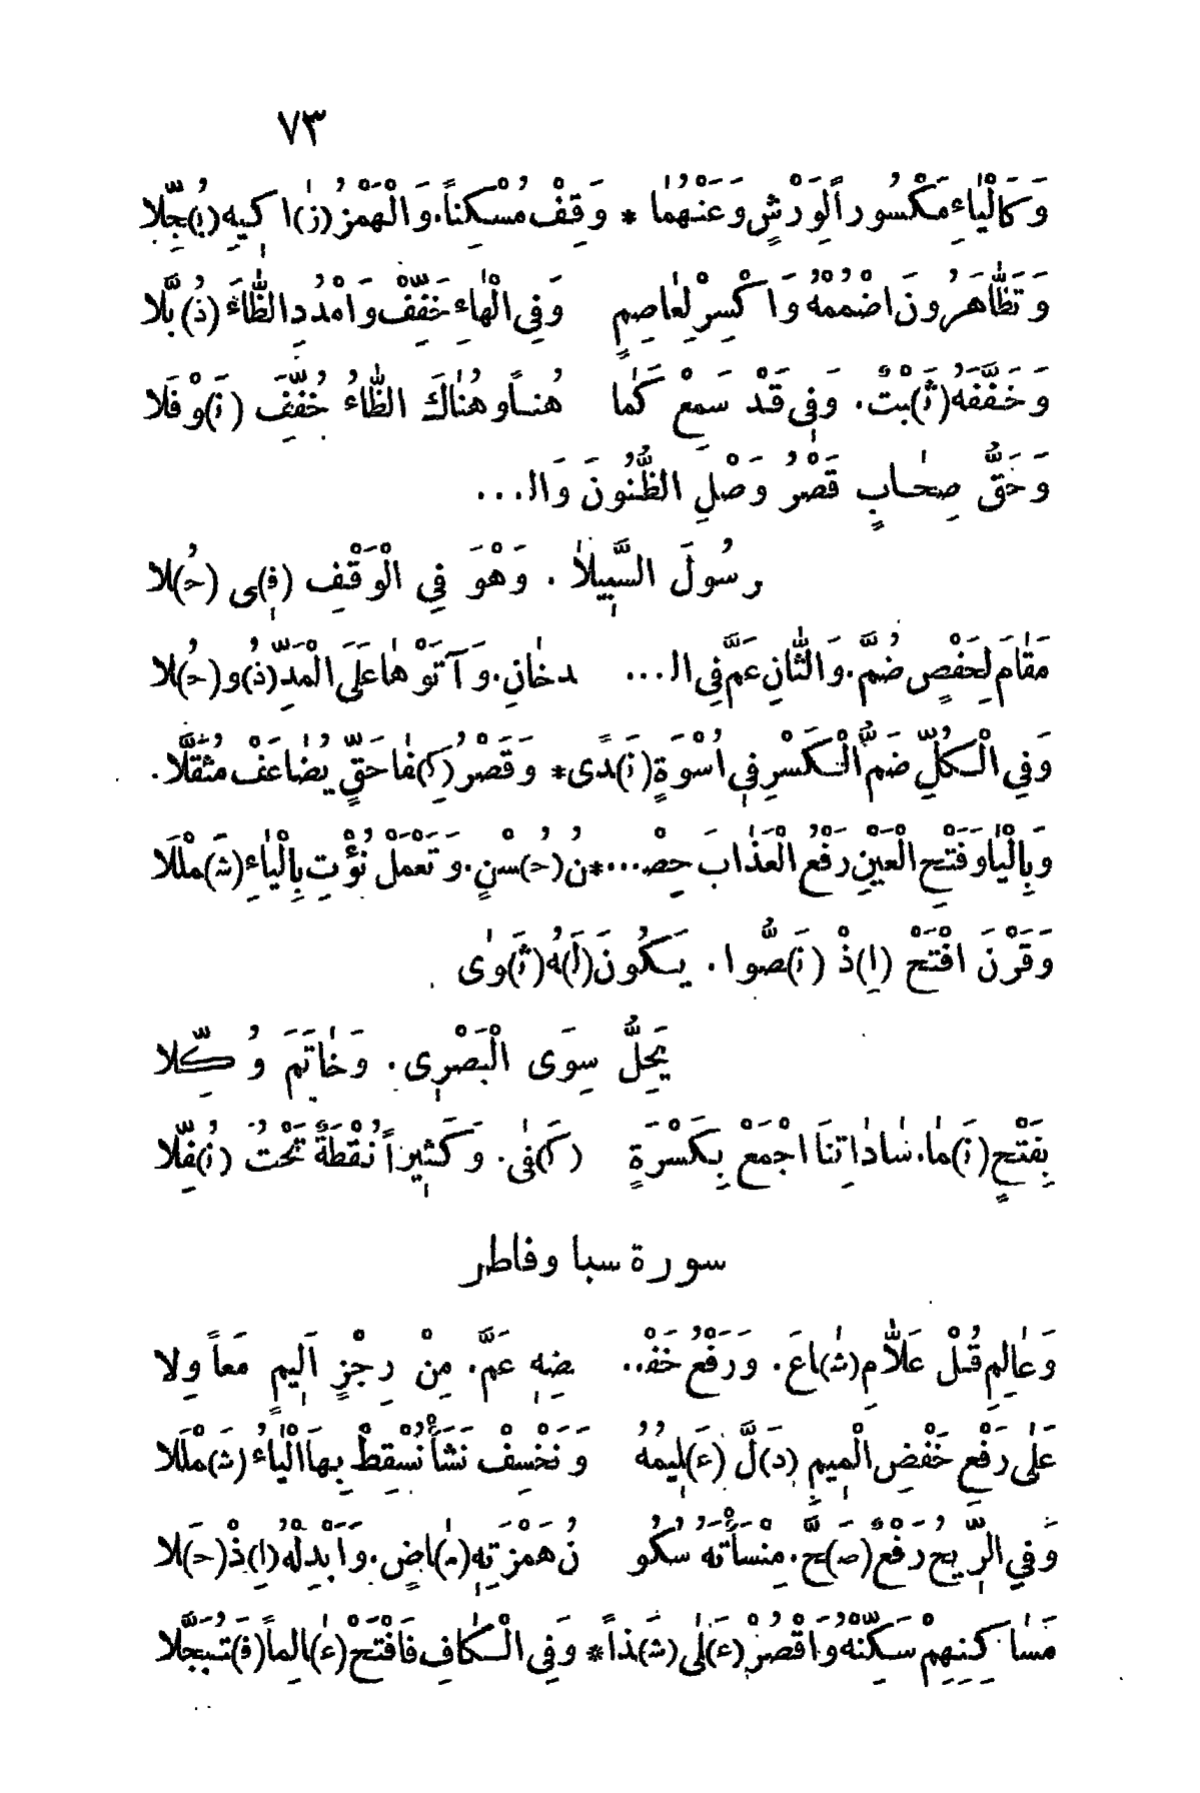 ٧٣
وَكَالْيَاءِ مَكْسُوراً لِوَرْشٍ وَعَنْهُمَا * وَقِفْ مُسْكِناً. وَالْهَمْزُ (زَ)اكِيهِ (بُ)جِّلَا
وَتَظَّاهَرُونَ اضْمُمْهُ وَاكْسِرْ لِعَاصِمٍ وَفِي الْهَاءِ خَفِّفْ وَامْدُدِ الظَّاءَ (ذُ)بَّلَا
وَخَفَّفَهُ (ثَ)بْتٌ. وَفِي قَدْ سَمِعْ كَمَا هُنَا وَهُنَاكَ الظَّاءُ خُفِّفَ (نَ)وْفَلَا
وَحَقُّ صِحَابٍ قَصْرُ وَصْلِ الظُّنُونَ وَالـ...
رَسُولَ السَّبِيلَا. وَهْوَ فِي الْوَقْفِ (فِ)ي (حُ)لَا
مَقَامَ لِحَفْصٍ ضُمَّ. وَالثَّانِ عَمَّ فِي الـ... دخَانِ. وَآتَوْهَا عَلَى الْمَدِّ (ذُ)و (حُ)لَا
وَفِي الْكُلِّ ضَمُّ الْكَسْرِ فِي أُسْوَةٍ (نَ)دًى * وَقَصْرُ (كِ)فَا حَقٍّ يُضَاعَفْ مُثَقَّلَا.
وَبِالْيَا وَفَتْحِ الْعَيْنِ رَفْعُ الْعَذَابَ حِصْـ... * نُ (حُ)سْنٍ. وَتَعْمَلْ نُؤْتِ بِالْيَاءِ (شَ)مْلَلَا
وَقَرْنَ افْتَحْ (إِ)ذْ (نَ)صُّوا. يَكُونَ (لَ)هُ (ثَ)وَى
يَحِلُّ سِوَى الْبَصْرِي. وَخَاتَمَ وُكِّلَا
بِفَتْحٍ (نَ)مَا. سَادَاتِنَا اجْمَعْ بِكَسْرَةٍ (كَ)فَى. وَكَثِيراً نُقْطَةٌ تَحْتُ (نُ)فِّلَا
سورة سبا وفاطر
وَعَالِمِ قُلْ عَلَّامِ (شَ)اعَ. وَرَفْعُ خَفْـ.. ـضِهِ عَمَّ. مِنْ رِجْزٍ أَلِيمٍ مَعاً وِلَا
عَلَى رَفْعِ خَفْضِ الْمِيمِ (دَ)لَّ (عَ)لِيمُهُ وَنَخْسِفْ نَشَأْ نُسْقِطْ بِهَا الْيَاءُ (شَ)مْلَلَا
وَفِي الرِّيحِ رَفْعٌ (صَ)حَّ. مِنْسَأْتَهُ سُكُو نُ هَمْزَتِهِ (مَ)اضٍ. وَأَبْدِلْهُ (إِ)ذْ (حَ)لَا
مَسَاكِنِهِمْ سَكِّنْهُ وَاقْصُرْ (عَ)لَى (شَ)ذاً * وَفِي الْكَافِ فَافْتَحْ (عَ)الِماً (فَ)تُبَجَّلَا